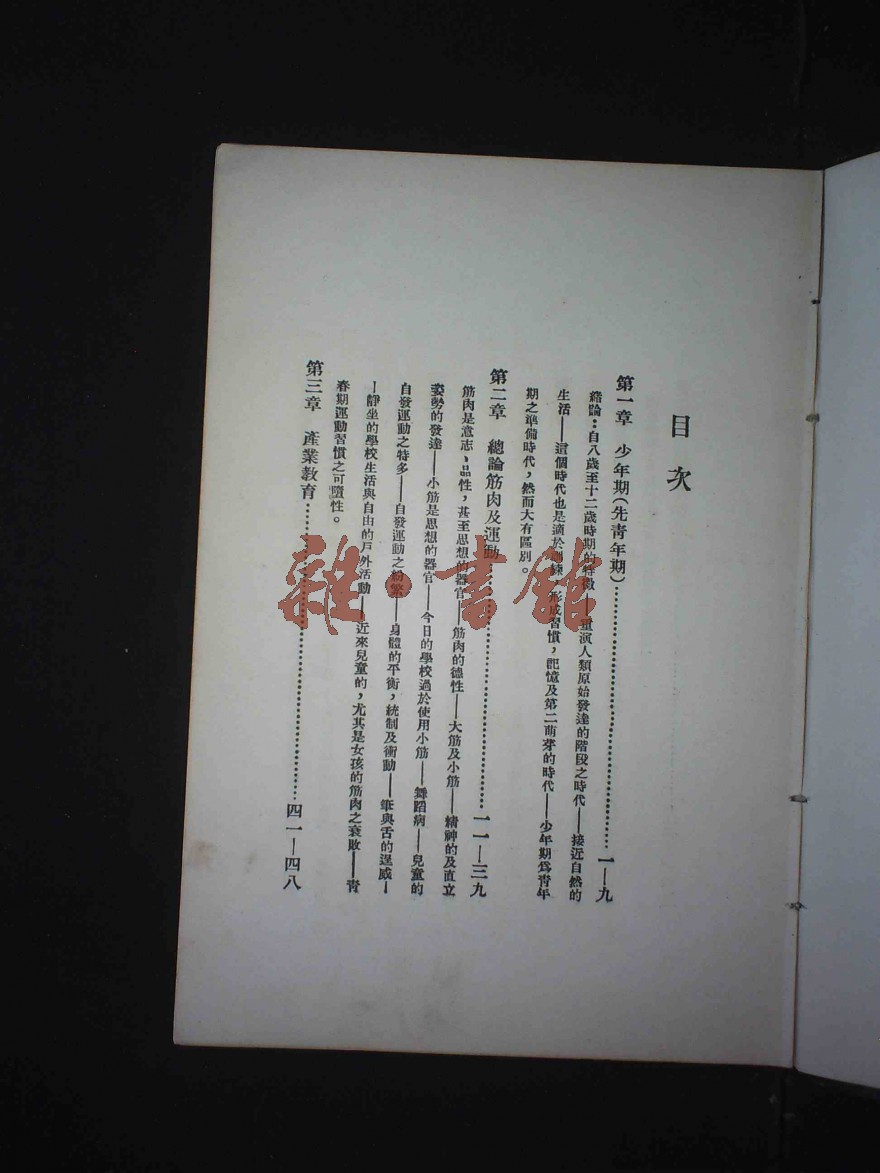 目次
第一章　少年期(先青年期)……一—九
緒論：自八歲至十二歲時期的特徵——重演人類原始發達的階段之時代——接近自然的
生活——這個時代也是適於訓練，形成習慣，記憶及第二萌芽的時代——少年期爲青年
期之準備時代，然而大有區別。
第二章　總論筋肉及運動……一一—三九
筋肉是意志、品性，甚至思想的器官——筋肉的德性——大筋及小筋——精神的及直立
姿勢的發達——小筋是思想的器官——今日的學校過於使用小筋——舞蹈病——兒童的
自發運動之特多——自發運動之紛繁——身體的平衡，統制及衝動——筆與舌的逞威—
—靜坐的學校生活與自由的戶外活動——近來兒童的，尤其是女孩的筋肉之衰敗——青
春期運動習慣之可墮性。
第三章　產業教育……四一—四八
雜·書館